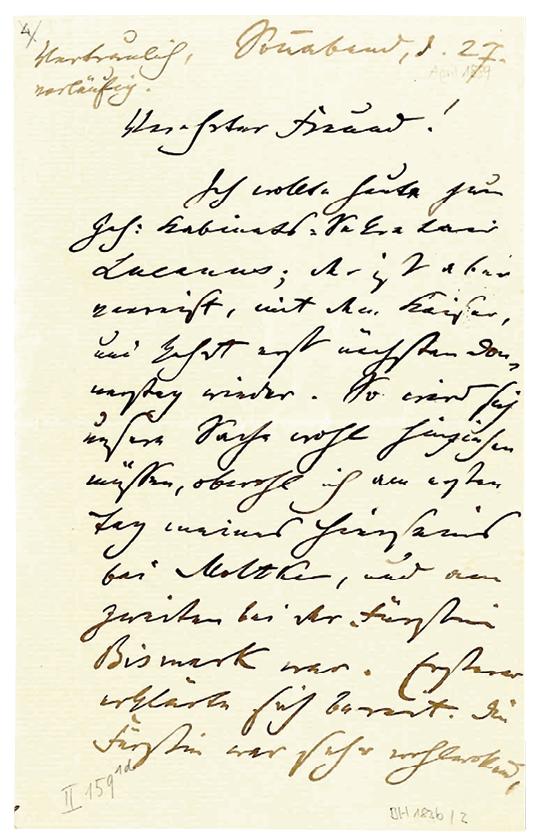 4/
Vertraulich, Sonnabend, d. 27.
vorläufig.
April 1889
Verehrter Freund!
Ich wollte heute zum
Geh: Kabinets-Sekretair
Lucanus; der ist aber
verreist, mit dem Kaiser,
und kehrt erst nächsten Don-
nerstag wieder. So wird sich
unsere Sache wohl hinziehen
müssen, obwohl ich am ersten
Tag meines Hierseins
bei Moltke, und am
zweiten bei der Fürstin
Bismark war. Ersterer
erklärte sich bereit. Die
Fürstin war sehr wohlwollend,
II 159 1d
BH 1826 / 2